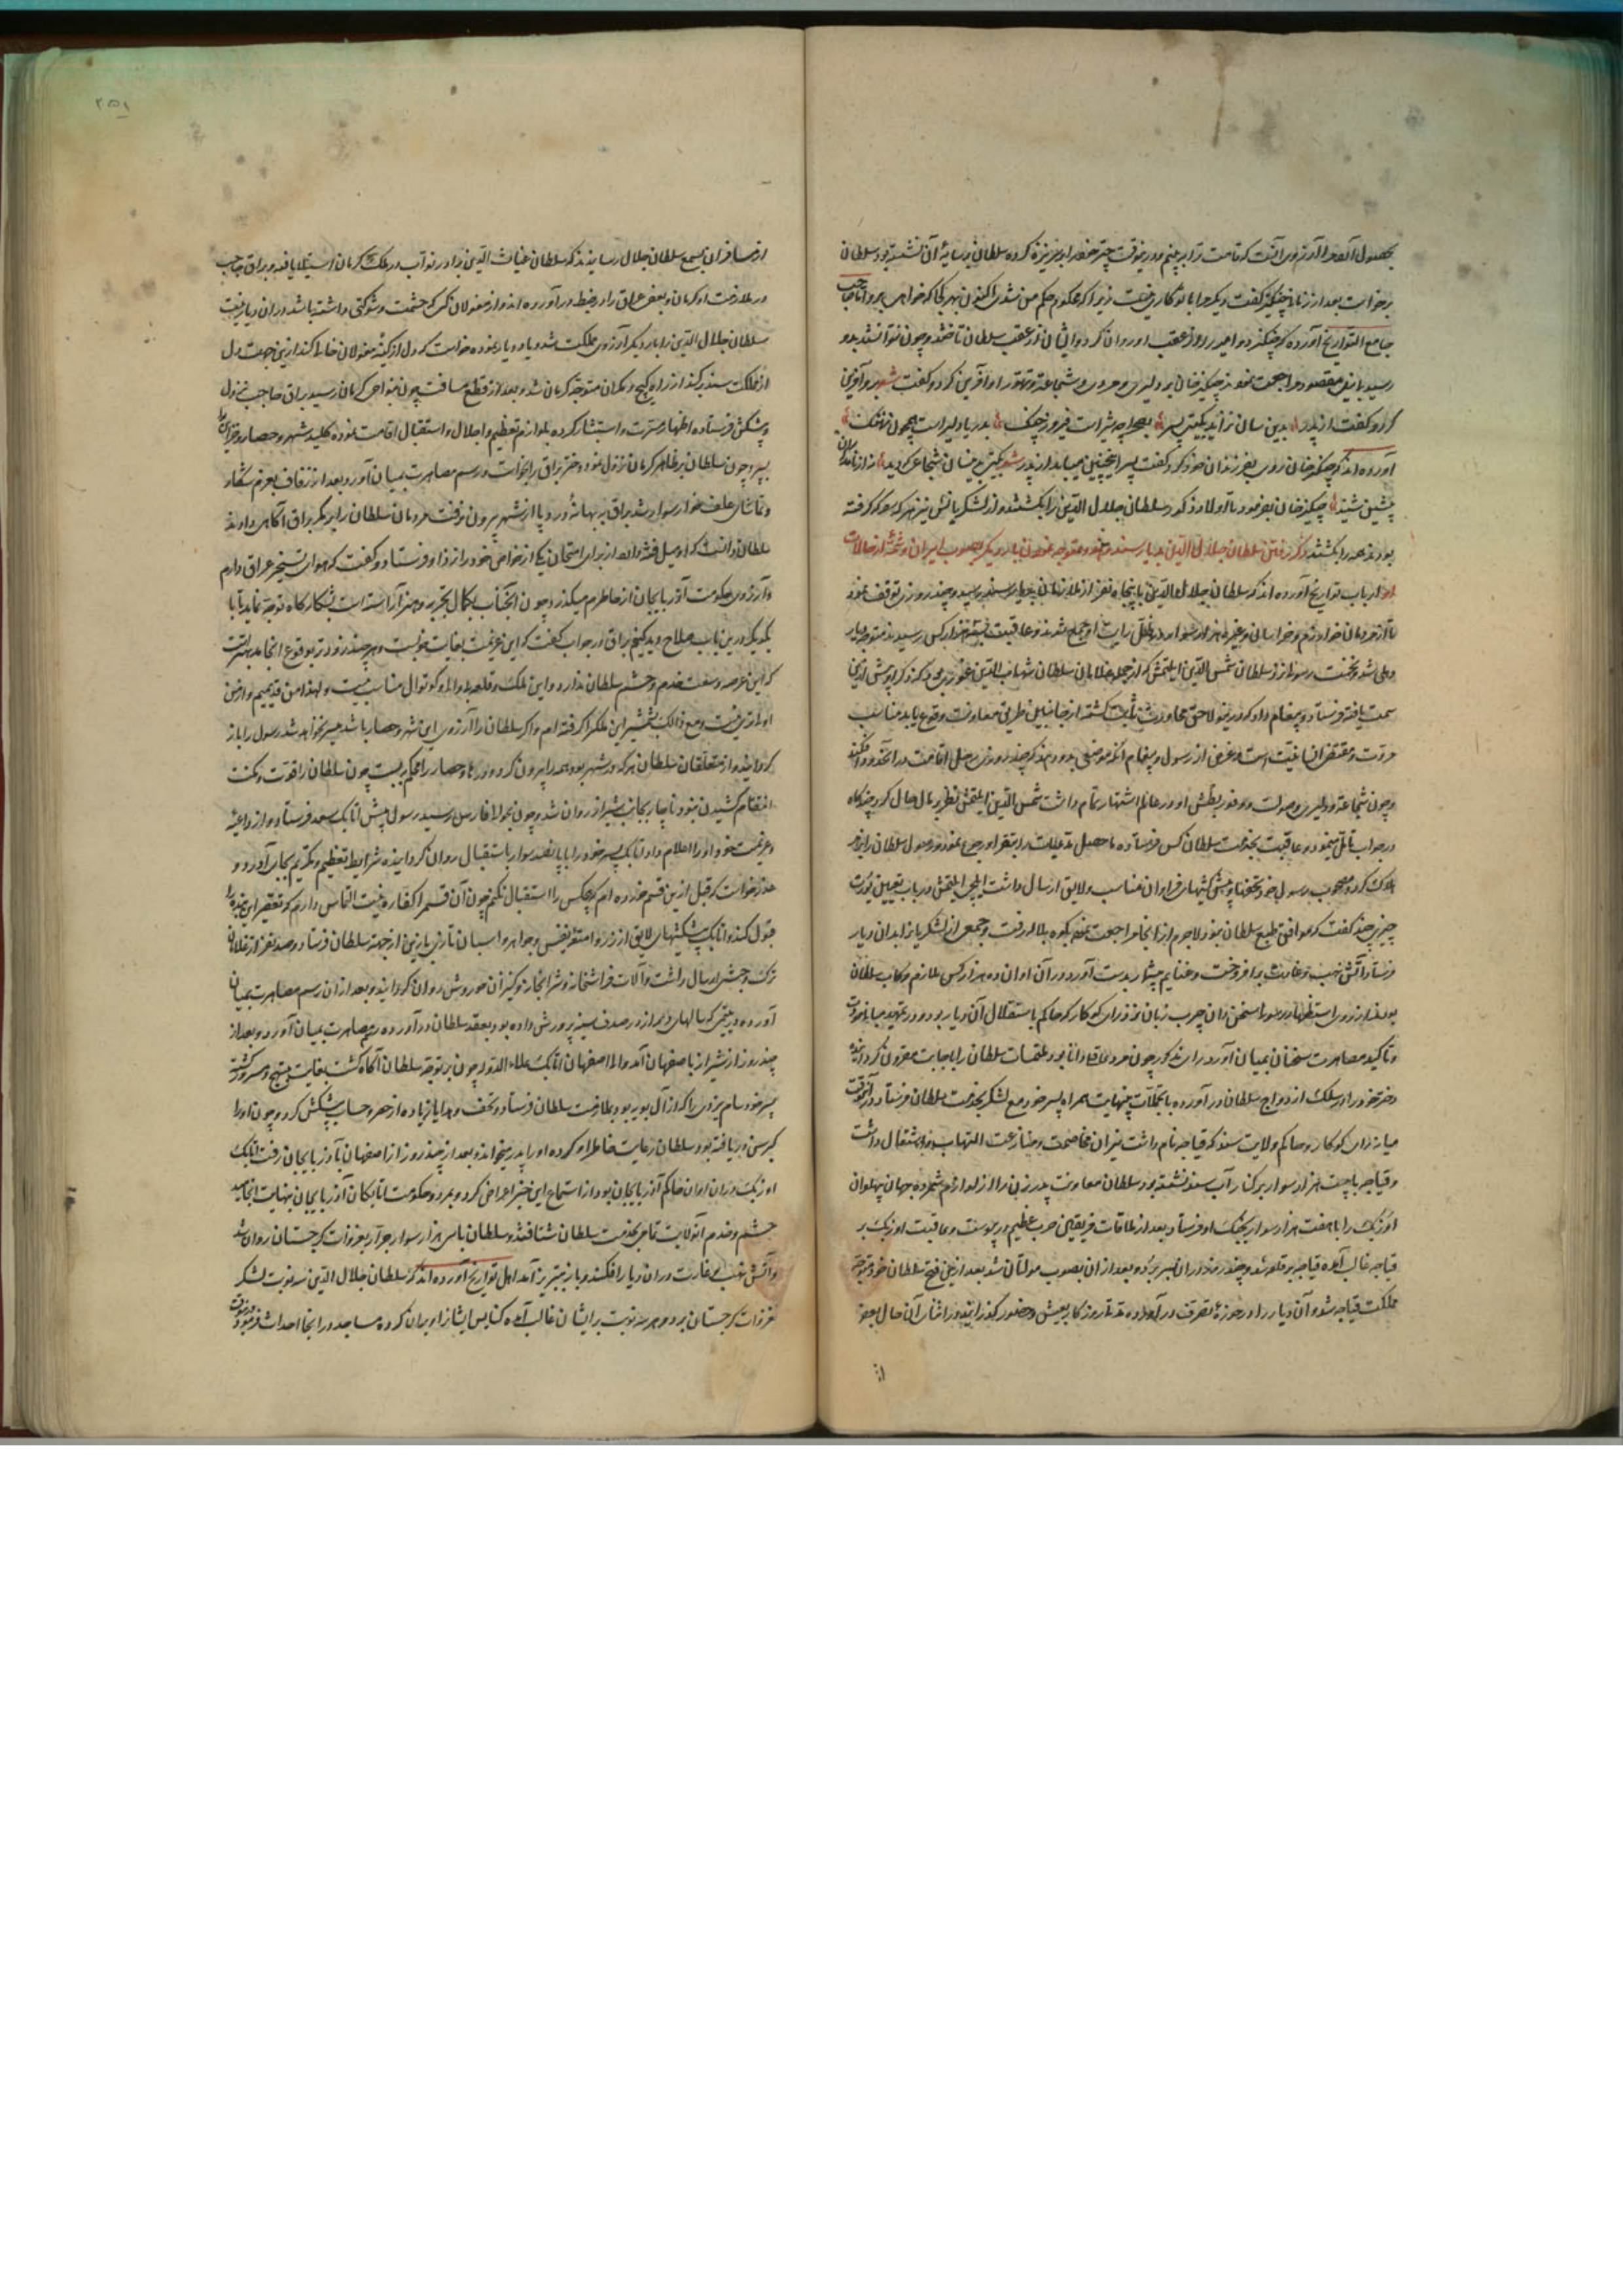 بحصول آنصورا آرزوی آنست که قامت ترا به بینم و درینوقت چتر خود را بر سر نیزه کرده سلطان در سایهٔ آن نشسته بود سلطان
برخواست بعد از زمانی چنگیز گفت دیگر مرا با تو کاری نیست زیرا که محکوم حکم من نشوی اکنون بهر کجا که خواهی برو اما صاحب
جامع التواریخ آورده که چنگیز دو امیر را از عقب او روان کرد و ایشان از عقب سلطان تاختند و چون نتوانستند بدو
رسید بی نیل مقصود مراجعت نمودند چنگیزخان بر دلیری و مردی و شجاعت و تهور او آفرین کرد و گفت شعر برو آفرین
کرد و گفت از پدر بدین سان نزاید بگیتی پسر بصحرا چو شیر است فیروز جنگ بدریا دلیر است همچون نهنگ
آورده اند که چنگیزخان روی بفرزندان خود کرد و گفت پسر اینچنین میباید از پدر شعر بگیتی کسی زینسان شجاعی ندید نه از نامداران
پیشین شنید چنگیزخان بفرمود تا اولاد ذکور سلطان جلال الدین را بکشتند و از لشکریانش نیز هر که سوکه گرفته
بودند همه را بکشتند ذکر رفتن سلطان جلال الدین بدیار سند و هند و متوجه شدن بار دیگر بصوب ایران و شمهٔ از حالات
او ارباب تواریخ آورده اند که سلطان جلال الدین با پنجاه نفر از ملازمان بدیار سند رسید و چند روزی توقف نمود
تا از مردمان خوارزم و خراسان و غیره هزار سوار در ظل رایت او جمع شدند و عاقبت بسه هزار کس رسیدند متوجه دیار
دهلی شد و نخست رسول نزد سلطان شمس الدین ایلتمش که از جمله غلامان سلطان شهاب الدین غوری بود که ذکر او پیش ازین
سمت یافته فرستاد و پیغام داد که درینولا حق مجاورت ثابت گشته از جانبین طریق معاونت وقوع یابد مناسب
مروت و مقتضی انسانیت است و غرض از رسول و پیغام آنکه موضعی بدو دهند که چند روزی رحل اقامت در آنحدود افکند
و چون شجاعت و دلیری و صولت و وفور بطش او در عالم اشتهار تمام داشت شمس الدین ایلتمش نظر بر مآل حال کرد چندگاه
در جواب تأمل مینمود و عاقبت بخدمت سلطان کس فرستاده تا حصیل مدعیات را بتقرر او رجوع نمود و رسول سلطان را نیز
هلاک کرد و مصحوب رسول خود تحفها و پیشکشهای فراوان مناسب و لایق ارسال داشت ایلچی ایلتمش در باب تعیین یورت
چیزی چند گفت که موافق طبع سلطان نبود لاجرم از آنجا مراجعت نموده بکوه بلاله رفت و جمعی از لشکریان را بدان دیار
فرستاد آتش نهب و غارت برافروخت و غنایم بیشمار بدست آورد و در آن اوان ده هزار کس ملازم رکاب سلطان
بودند از روی استظهار رسول سخن دان چرب زبان نزد رای کوکار که حاکم باستقلال آن دیار بود و در تمهید مبانی مودت
و تاکید مصاهرت سخنان بمیان آورد رای مذکور چون مردی عاقل و دانا بود ملتمسات سلطان را باجابت مقرون گردانیده
دختر خود را در سلک ازدواج سلطان در آورده با تجملات بینهایت همراه پسر خود مع لشکر بخدمت سلطان فرستاد و در آنوقت
میانه رای کوکار و حاکم ولایت سند که قباجه نام داشت نیران مخاصمت و منازعت التهاب و اشتعال داشت
و قباجه با بیست هزار سوار بر کنار آب سند نشسته بود سلطان معاونت پدر زن را از لوازم شمرده جهان پهلوان
اوزبک را با هفت هزار سوار بجنگ او فرستاد بعد از ملاقات فریقین حرب عظیم در پیوست و عاقبت اوزبک بر
قباجه غالب آمده قباجه بر قلعه شد و چند روز در ان بسر برد و بعد از ان بصوب مولتان شد بعد از نیل فتح سلطان خود متوجه
مملکت قباجه شد و آن دیار را در حوزهٔ تصرف در آورده مدتی روزگار بعیش و حضور گذرانید و در اثنای آن حال بعضی
از
۲۵۱
از مسافران بسمع سلطان جلال رسانیدند که سلطان غیاث الدین برادر نواب در ملک کرمان استیلا یافته و براق حاجب
در ملازمت او کرمان و بعضی عراق را در ضبط در آورده اند و از مغولان کسی که حشمت و شوکتی داشته باشد در ان دیار نیست
سلطان جلال الدین را بار دیگر آرزوی مملکت شد و یاد دیار نموده خواست که دل از کینهٔ مغولان خالی کند ازین جهت دل
از مملکت سند بر کند از راه کیج و مکران متوجه کرمان شد و بعد از قطع مسافت چون بنواحی کرمان رسید براق حاجب نزول
و پیشکش فرستاده اظهار مسرت و استبشار کرده بلوازم تعظیم و اجلال و استقبال اقامت نموده کلید شهر و حصار و خزاین را
بسپرد چون سلطان بر ظاهر کرمان نزول نمود دختر براق را بخواست و رسم مصاهرت بمیان آورد و بعد از زفاف بعزم شکار
و تماشای علف خوار سوار شد براق به بهانهٔ درد پا از شهر بیرون نرفت مردمان سلطان را بر مکر براق آگاهی دادند
سلطان دانست که او میل فتنه دارد از برای امتحان یکی از خواص خود را نزد او فرستاد و گفت که هوای تسخیر عراق دارم
و آرزوی حکومت آذربایجان از خاطرم میگذرد چون آنجناب بکمال تجربه و هنر آراسته است بشکارگاه توجه نماید تا با
یکدیگر درین باب صلاح دید کنیم براق در جواب گفت که این عزیمت بغایت خوبست و هر چند زودتر بوقوع انجامد بهتر است
که این عرصه وسعت خدم و حشم سلطان ندارد و این ملک و قلعه را والی و کوتوال مناسب نیست و لهذا من قدیمیم و از من
اولی تری نیست و مع ذالک بشمشیر این ملک را گرفته ام و اگر سلطان را آرزوی این شهر و حصار باشد میسر نخواهد شد رسول را باز
گردانید و از متعلقان سلطان هر که در شهر بود همه را بیرون کرد و درها و حصار را محکم ببست چون سلطان را قوت و مکنت
انتقام کشیدن نبود ناچار بجانب شیراز روان شد و چون بحوالی فارس رسید رسول پیش اتابک سعد فرستاد و از داعیه
و عزیمت خود او را اعلام داد اتابک پسر خود را با پانصد سوار باستقبال روان گردانیده شرایط تعظیم و تکریم بجای آورد و
عذر خواست که قبل ازین قسم خورده ام که هیچکس را استقبال نکنم چون آن قسم را کفاره نیست التماس دارم که تقصیر این بنده را
قبول کند و اتابک پیشکشهای لایق از زر و امتعهٔ نفیس و جواهر و اسپان تازی با زین از جهت سلطان فرستاد و صد نفر از غلامان
ترک و حبشی ارسال داشت و آلات فراشخانه و شرابخانه و کنیزان خوروش روان گردانید و بعد از ان رسم مصاهرت بمیان
آورده دُر یتیمی که سالهای دیر از در صدف سینه پرورش داده بود بعقد سلطان در آورده رسم مصاهرت بمیان آورد و بعد از
چند روز از شیراز باصفهان آمد والی اصفهان اتابک علاء الدوله چون بر توجه سلطان آگاه گشت بغایت مبتهج و مسرور گشت
پسر خود سام یزدی را که از آل بویه بود بملازمت سلطان فرستاد و تحف و هدایا زیاده از حصر و حساب پیشکش کرد و چون او را
کبر سن دریافته بود سلطان رعایت خاطر او کرده او را پدر میخواند و بعد از چند روز از اصفهان بآذربایجان رفت اتابک
اوزبک در ان اوان حاکم آذربایجان بود از استماع این خبر اعراض کرد و بمرد و حکومت اتابکان آذربایجان بنهایت انجامید
حشم و خدم آنولایت تمامی بخدمت سلطان شتافتند و سلطان با سی هزار سوار جرار بغزوات گرجستان روان شد
و آتش نهب و غارت در ان دیار افکند و باز بتبریز آمد اهل تواریخ آورده اند که سلطان جلال الدین سه نوبت لشکر
بغزوات گرجستان برد و هر سه نوبت بر ایشان غالب آمده کنایس ایشانرا ویران کرده مساجد در آنجا احداث فرمود